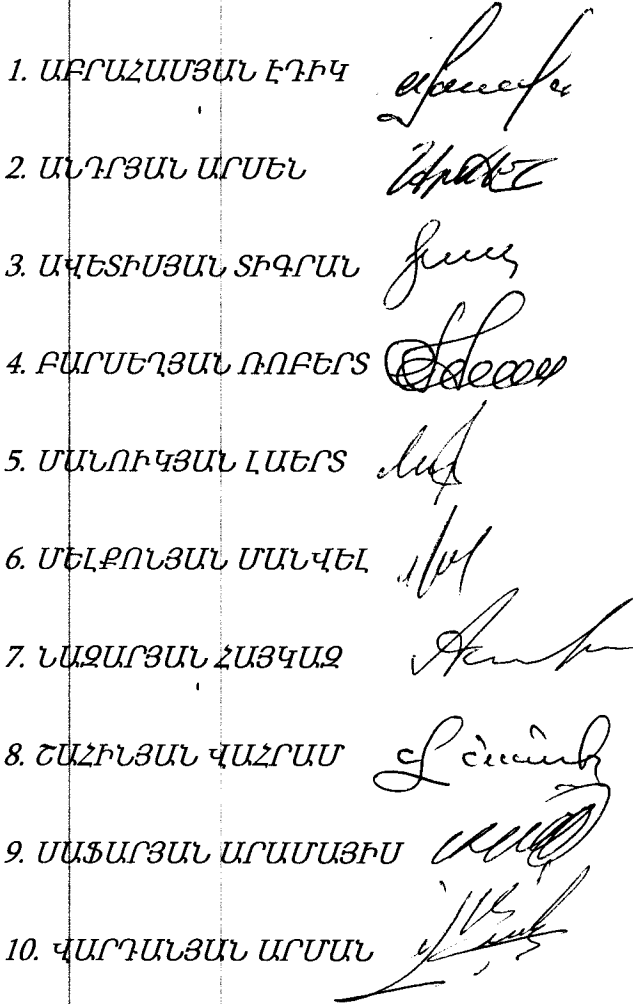 1. ԱԲՐԱՀԱՄՅԱՆ ԷԴԻԿ
2. ԱՆԴՐՅԱՆ ԱՐՍԵՆ
3. ԱՎԵՏԻՍՅԱՆ ՏԻԳՐԱՆ
4. ԲԱՐՍԵՂՅԱՆ ՌՈԲԵՐՏ
5. ՄԱՆՈՒԿՅԱՆ ԼԱԵՐՏ
6. ՄԵԼՔՈՆՅԱՆ ՄԱՆՎԵԼ
7. ՆԱԶԱՐՅԱՆ ՀԱՅԿԱԶ
8. ՇԱՀԻՆՅԱՆ ՎԱՀՐԱՄ
9. ՍԱՖԱՐՅԱՆ ԱՐԱՄԱՅԻՍ
10. ՎԱՐԴԱՆՅԱՆ ԱՐՄԱՆ